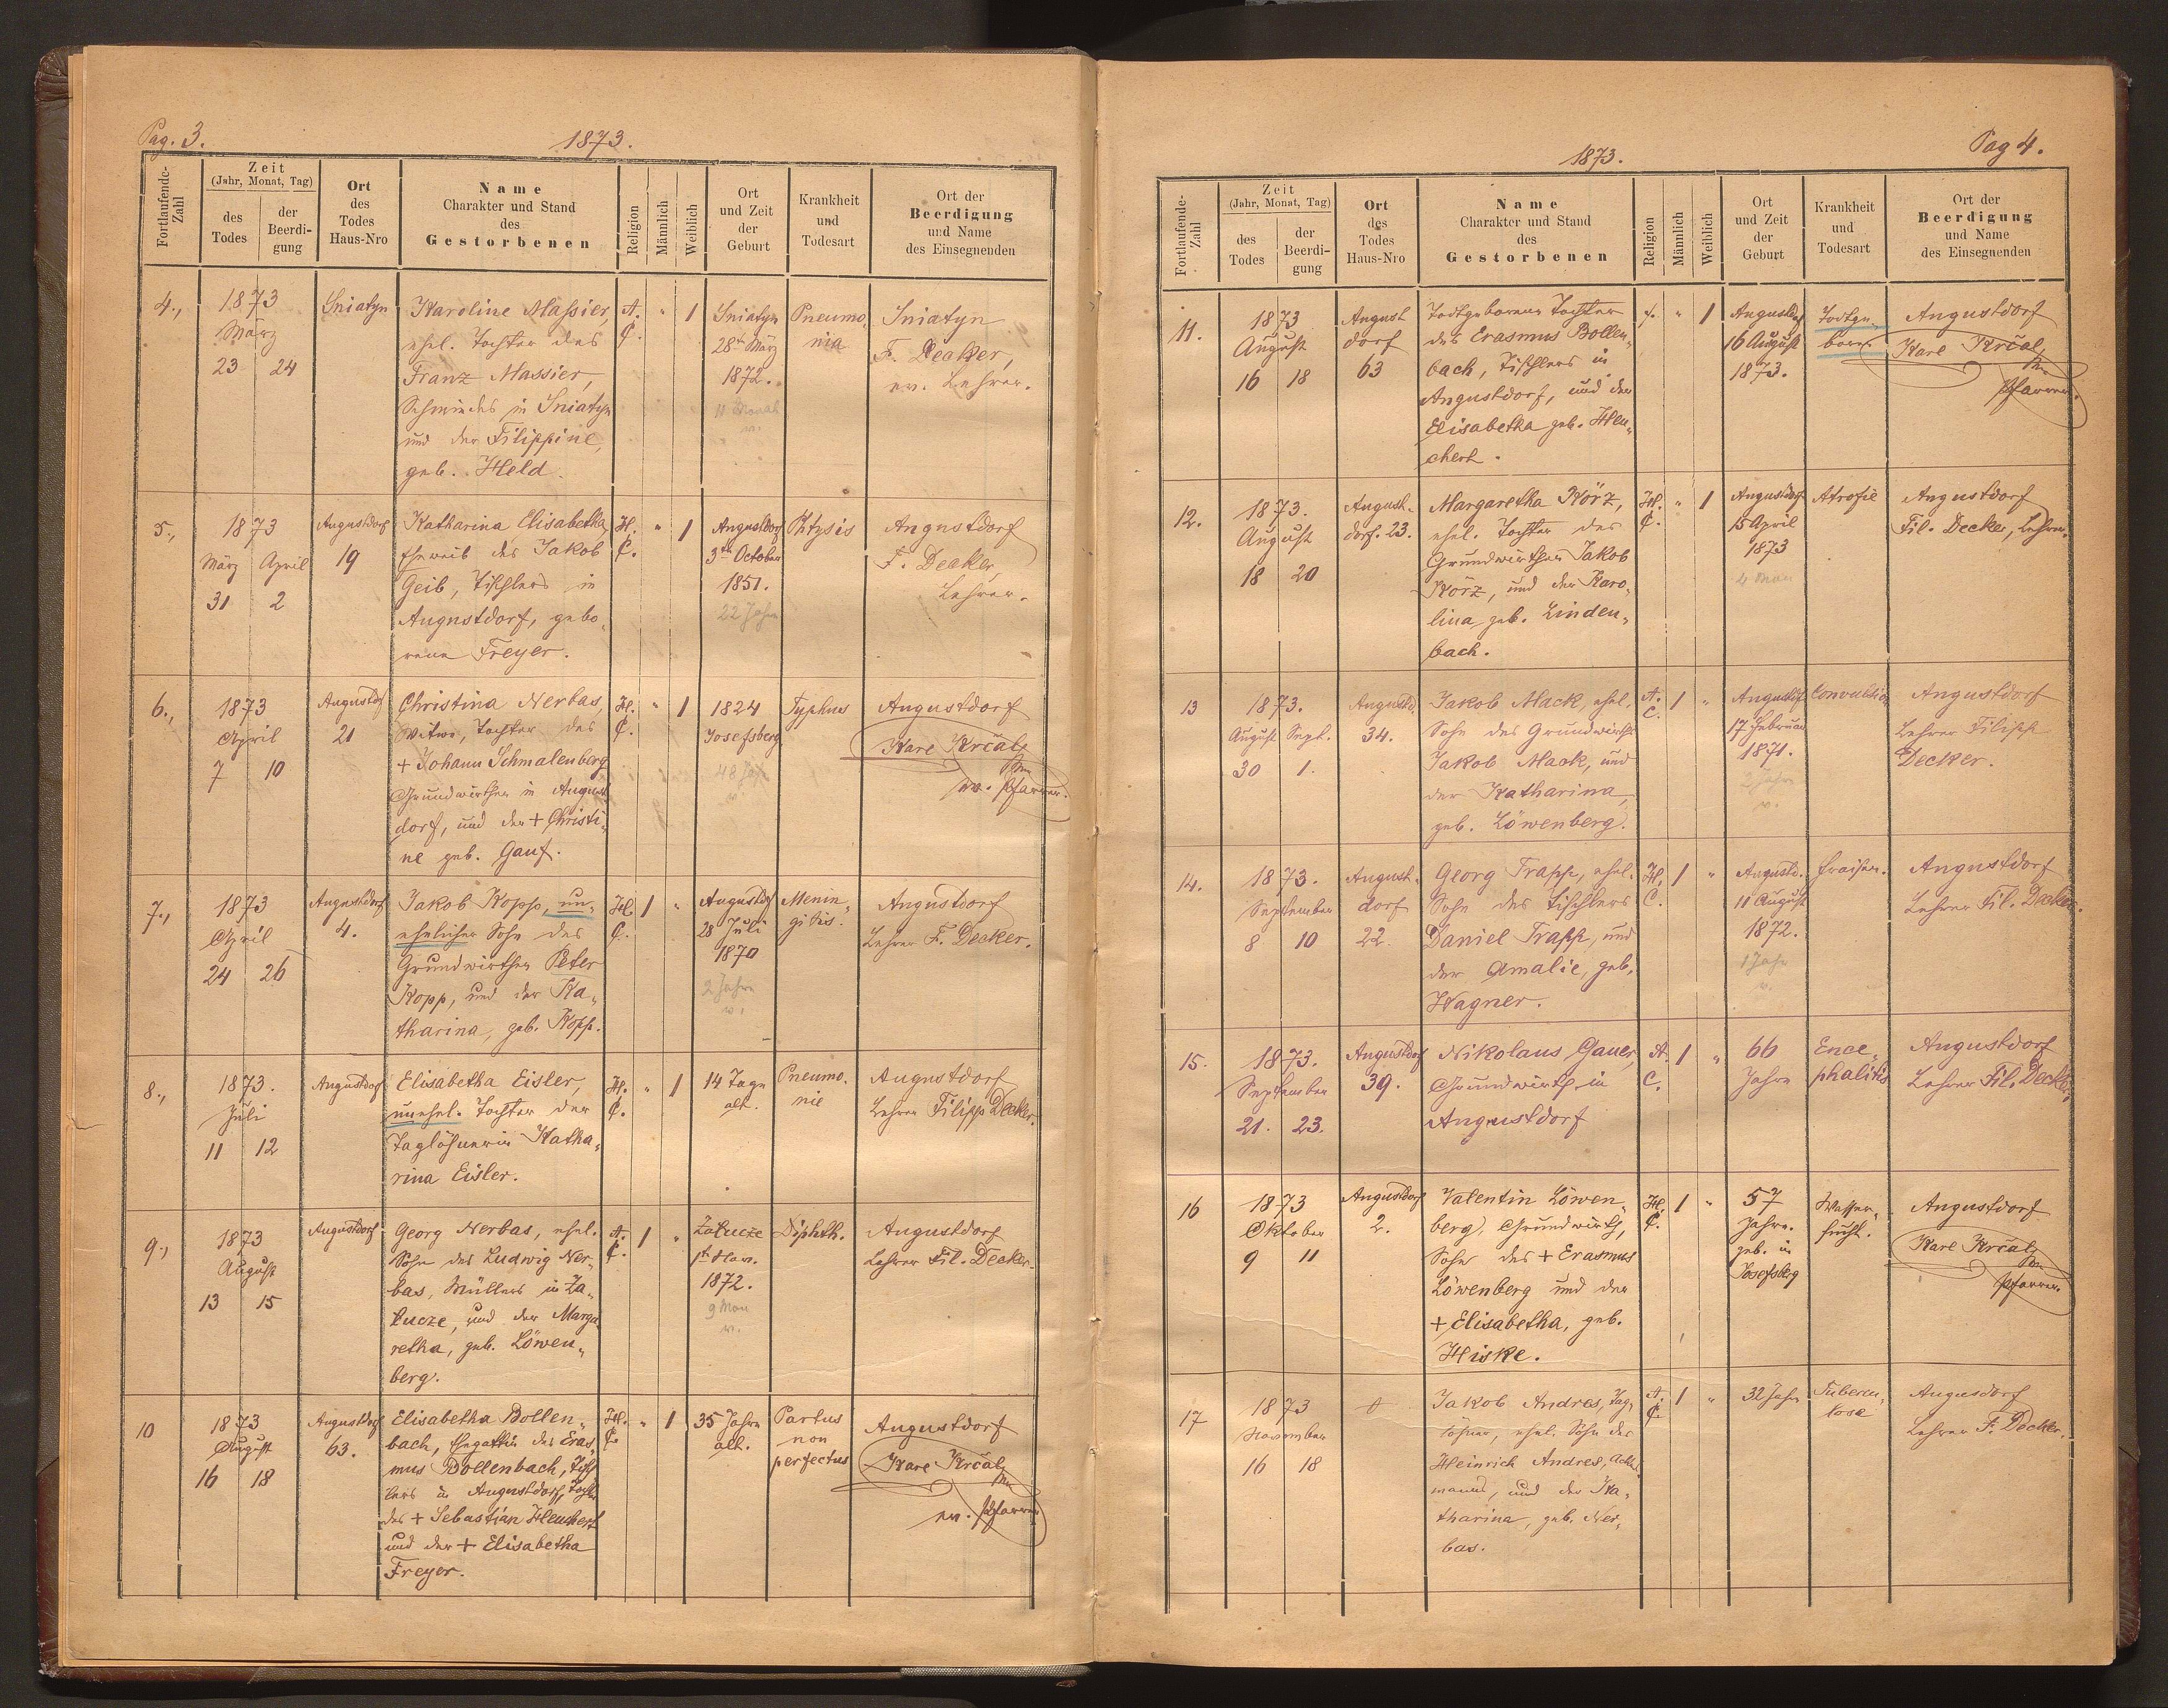 Pag. 3.
1873.
Fortlaufende-
Zahl
Zeit
(Jahr, Monat, Tag)
des
Todes
der
Beerdi-
gung
Ort
des
Todes
Haus-Nro
Name
Charakter und Stand
des
Gestorbenen
Religion
Männlich
Weiblich
Ort
und Zeit
der
Geburt
Krankheit
und
Todesart
Ort der
Beerdigung
und Name
des Einsegnenden
4.,
1873
März
23 24
Sniatyn
Karoline Massier,
ehel. Tochter des
Franz Massier,
Schmiedes in Sniatyn
und der Filippine,
geb. Held.
A.
C.
" 1
Sniatyn
28ten März
1872.
11 Monat
Pneumo„
nia
Sniatyn
F. Decker,
ev. Lehrer.
5.,
1873
März April
31 2
Augustdorf
19
Katharina Elisabetha
Eheweib des Jakob
Geib, Tischlers in
Augustdorf, gebo„
rene Freyer.
H.
C.
" 1
Augustdorf
3ten October
1851.
22 Jahre
Phtysis
Augustdorf
F. Decker,
Lehrer.
6.,
1873
April
7 10
Augustdf
21
Christina Nerbas,
Witwe, Tochter des
+ Johann Schmalenberg
Grundwirthen in August
dorf, und der + Christi„
ne geb. Gauf.
H.
C.
" 1
1824
Josefsberg
48 Jahr
Typhus
Augustdorf
Karl Krčal
ev. Pfarrer.
7.,
1873
April
24 26
Augustdorf
4.
Jakob Kopp, un„
ehelicher Sohn des
Grundwirthen Peter
Kopp, und der Ka„
tharina, geb. Kopp.
H.
C.
1 "
Augustdf
28 Juli
1870
2 Jahre
Menin„
gitis.
Augustdorf
Lehrer F. Decker.
8.,
1873.
Juli
11 12
Augustdorf
Elisabetha Eisler,
unehel. Tochter der
Taglöhnerin Katha„
rina Eisler.
H.
C.
" 1
14 Tage
alt.
Pneumo.
nie
Augustdorf
Lehrer Filipp Decker.
9.,
1873
August
13 15
Augustdorf
Georg Nerbas, ehel.
Sohn des Ludwig Ner„
bas, Müllers in Za„
lucze, und der Marga
retha, geb. Löwen„
berg.
A.
C.
1 "
Zalucze
1ten Nov.
1872.
9 Mon
Diphth.
Augustdorf
Lehrer Fil. Decker.
10
1873
August
16 18
Augustdorf
63.
Elisabetha Bollen„
bach, Ehegattin des Eras„
mus Bollenbach, Tisch
lers in Augustdorf, Tochter
des + Sebastian Heuchert
und der + Elisabetha
Freyer.
H.
C.
" 1
35 Jahre
alt.
Partus
non
perfectus
Augustdorf
Karl Krčal
ev. Pfarrer
1873.
Pag 4.
Fortlaufende-
Zahl
Zeit
(Jahr, Monat, Tag)
des
Todes
der
Beerdi-
gung
Ort
des
Todes
Haus-Nro
Name
Charakter und Stand
des
Gestorbenen
Religion
Männlich
Weiblich
Ort
und Zeit
der
Geburt
Krankheit
und
Todesart
Ort der
Beerdigung
und Name
des Einsegnenden
11.
1873
August
16 18
August
dorf
63
Todtgeborene Tochter
des Erasmus Bollen„
bach, Tischlers in
Augustdorf, und der
Elisabetha geb. Heu„
chert.
" 1
Augustdf
16 August
1873.
Todtge„
boren
Augustdorf
Karl Krčal
Pfarrer.
12.
1873.
August
18 20
August.
dorf. 23.
Margaretha Körz,
ehel. Tochter des
Grundwirthen Jakob
Körz, und der Karo„
lina geb. Linden„
bach.
H.
C.
" 1
Augustdorf
15 April
1873
4 Mon
Atrofie
Augustdorf
Fil. Decker, Lehrer.
13
1873.
August Sept.
30 1.
Augustd.
34.
Jakob Mack, ehel.
Sohn des Grundwirths
Jakob Mack, und
der Katharina,
geb. Löwenberg.
A.
C.
1 "
Augustdf
17 Februar
1871.
2 Jahre
Convulsion
Augustdorf
Lehrer Filipp
Decker.
14.
1873.
September
8 10
August.
dorf
22.
Georg Trapp, ehel.
Sohn des Tischlers
Daniel Trapp, und
der Amalie, geb.
Wagner.
H.
C.
1 "
Augustd.
11 August
1872.
1 Jahr
Fraisen.
Augustdorf
Lehrer Fil. Decker.
15.
1873.
September
21. 23.
Augustdorf
39.
Nikolaus Gauer,
Grundwirth in
Augustdorf
A.
C.
1 "
66
Jahre
Ence„
phalitis
Augustdorf
Lehrer Fil. Decker,
16
1873
Oktober
9 11
Augustdorf
2.
Valentin Löwen„
berg, Grundwirth,
Sohn des + Erasmus
Löwenberg und der
+ Elisabetha, geb.
Hiske.
H.
C.
1 "
57
Jahre.
geb. in
Josefsberg
Wasser„
sucht.
Augustdorf
Karl Krčal
Pfarrer.
17
1873
November
16 18
Jakob Andres, Tag„
löhner, ehel. Sohn des
Heinrich Andres, Acker
manns, und der Ka„
tharina, geb. Ner„
bas.
A.
C.
1 "
32 Jahre
Tubercu„
lose
Augusdorf
Lehrer F. Decker.